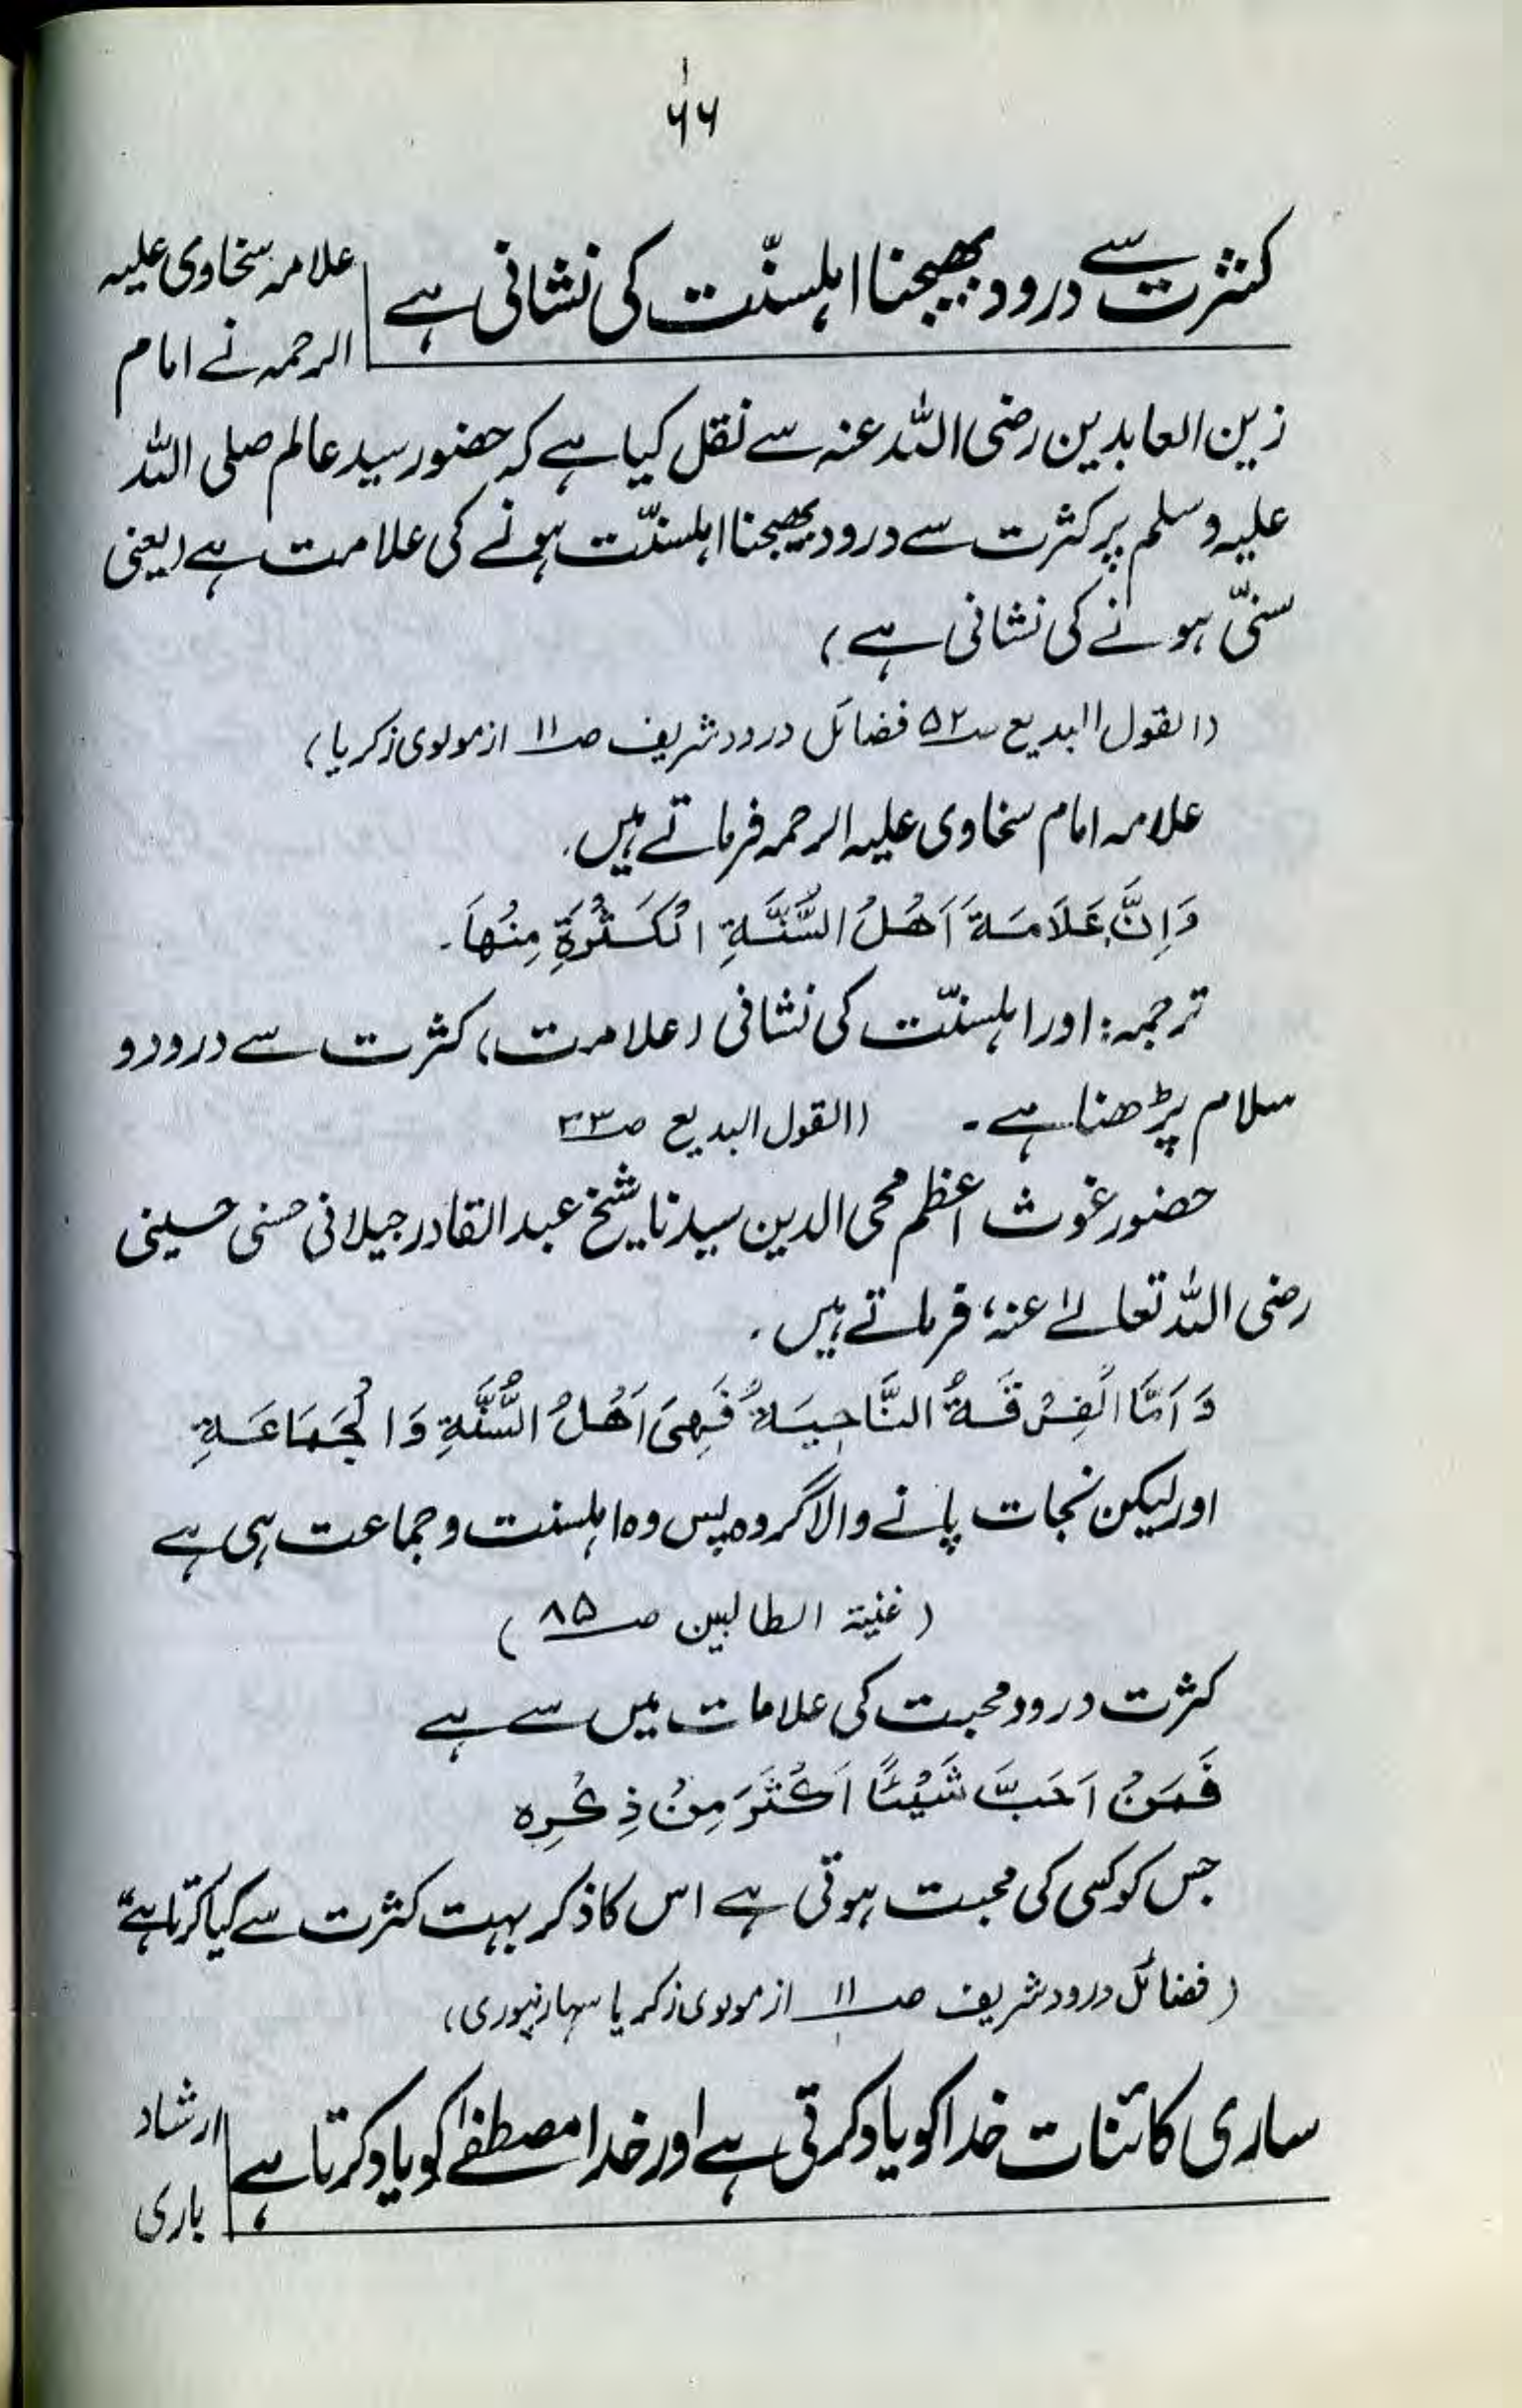 ۶۶
کثرت سے درود بھیجنا اہلسنّت کی نشانی ہے
علامہ سخاوی علیہ
الرحمہ نے امام
زین العابدین رضی اللہ عنہ سے نقل کیا ہے کہ حضور سید عالم صلی اللہ
علیہ وسلم پر کثرت سے درود بھیجنا اہلسنّت ہونے کی علامت ہے (یعنی
سنّی ہونے کی نشانی ہے)
(القول البدیع ص۵۲ فضائل درود شریف ص۱۱ از مولوی زکریا)
علامہ امام سخاوی علیہ الرحمہ فرماتے ہیں۔
وَاِنَّ عَلَامَةَ اَهْلُ السُّنَّةِ الْكَثْرَةِ مِنْهَا۔
ترجمہ: اور اہلسنّت کی نشانی (علامت) کثرت سے درود و
سلام پڑھنا ہے۔ (القول البدیع ص۳۳
حضور غوث اعظم محی الدین سیدنا شیخ عبد القادر جیلانی حسنی حسینی
رضی اللہ تعالےٰ عنہ، فرماتے ہیں۔
وَاَمَّا الْفِرْقَةُ النَّاجِيَةُ فَهِيَ اَهْلُ السُّنَّةِ وَالْجَمَاعَةِ
اور لیکن نجات پانے والا گروہ پس وہ اہلسنت و جماعت ہی ہے
(غنیۃ الطالبین ص۸۵)
کثرت درود محبت کی علامات میں سے ہے
فَمَنْ اَحَبَّ شَيْئًا اَكْثَرَ مِنْ ذِكْرِه
جس کو کسی کی محبت ہوتی ہے اس کا ذکر بہت کثرت سے کیا کرتا ہے"
(فضائل درود شریف ص۱۱ از مولوی زکریا سہارنپوری)
ساری کائنات خدا کو یاد کرتی ہے اور خدا مصطفےٰ کو یاد کرتا ہے
ارشاد
باری